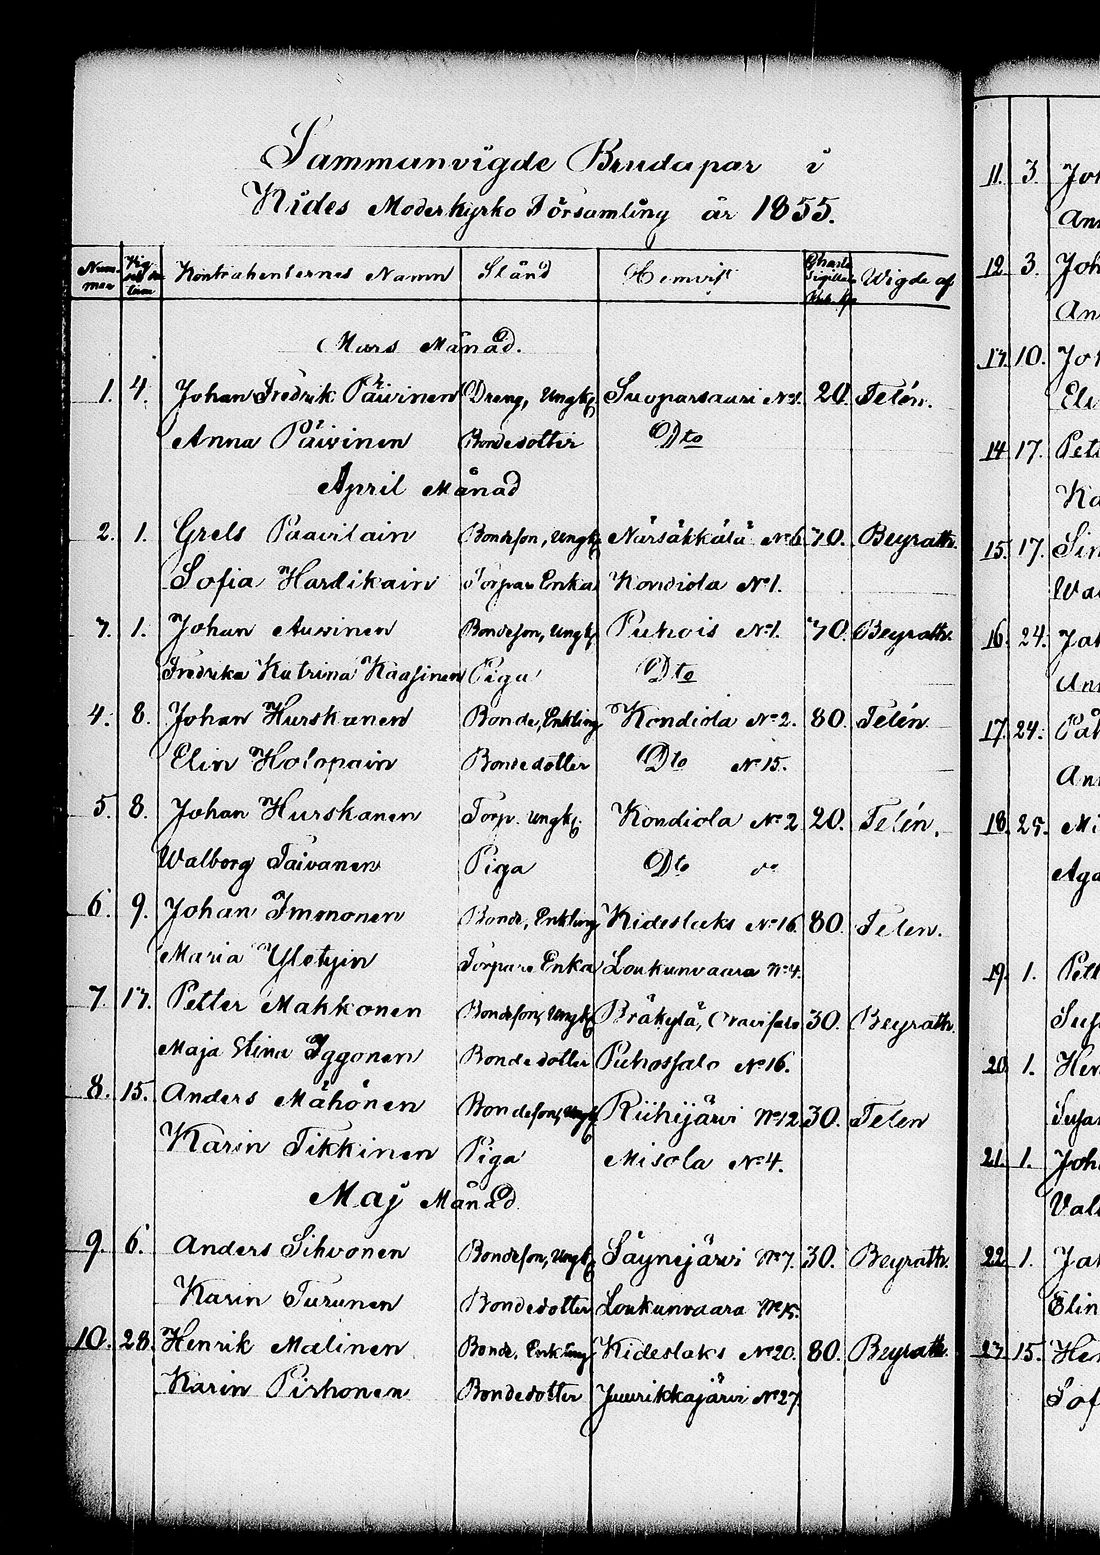 Sammanvigde Brudapar i
Kides Moderkyrko Församling år 1855.
Nummer Vigseldatum Kontrahenternes Namn Stånd Hemvist Charta Sigillata Wigde af
Mars Månad.
1. 4. Johan Fredrik Päivinen Dreng, Ungk. Suoparsaari No 1. 20. Telén.
Anna Päivinen Bondedotter Dto
April Månad
2. 1. Grels Paavilain Bondeson, Ungk. Närsäkkälä No 6 30. Beyrath.
Sofia Hardikain Torpare Enka Kondiola No 1.
3. 1. Johan Auvinen Bondeson, Ungk. Puhois No 1. 30. Beyrath.
Fredrika Katrina Kaasinen Piga Dto
4. 8. Johan Hurskanen Bonde, Enkling Kondiola No 2. 80. Telén
Elin Holopain Bondedotter Dto No 15.
5. 8. Johan Hurskanen Torp. Ungk. Kondiola No 2 20. Telén.
Walborg Taivanen Piga Dto
6. 9. Johan Immonen Bonde, Enkling Kideslaks No 16. 80. Telén.
Maria Yletyin Torpare Enka Loukunvaara No 4.
7. 13. Petter Makkonen Bondeson, Ungk. Bräkylä, Oravisalo 30. Beyrath.
Maja Stina Iggonen Bondedotter Puhossalo No 16.
8. 15. Anders Mähönen Bondeson, Ungk. Riihijärvi No 12. 30. Telen
Karin Tikkinen Piga Misola No 4.
Maj Månad.
9. 6. Anders Sihvonen Bondeson, Ungk. Säynejärvi No 7. 30. Beyrath.
Karin Turunen Bondedotter Loukunvaara No 15.
10. 28. Henrik Malinen Bonde, Enkling Kideslaks No 20. 80. Beyrath
Karin Pirhonen Bondedotter Juurikkajärvi No 27
11. 3. Joh
Ann
12. 3. Joh
An
13. 10. Joh
Eli
14. 17. Pet
Ka
15. 17. Sim
Wa
16. 24. Joh
Ann
17. 24. Påh
An
18. 25. Mi
Aga
19. 1. Pett
Susa
20. 1. Hen
Susa
21. 1. Joh
Val
22. 1. Joh
Elin
23. 15. Hen
Sof